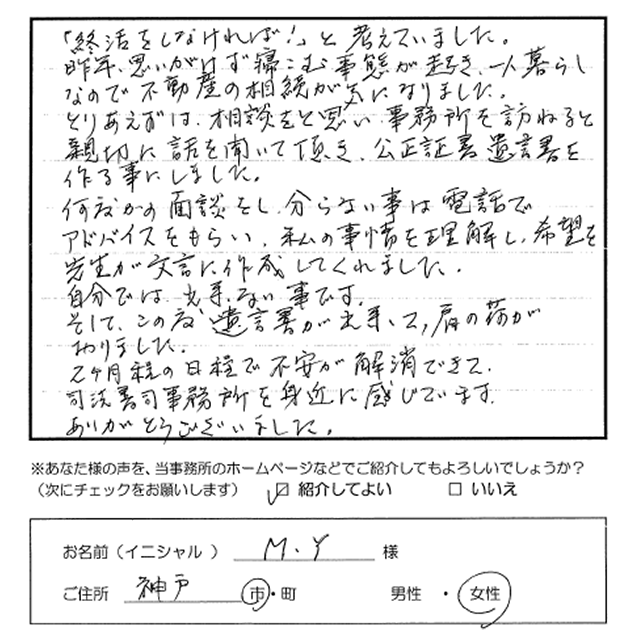 「終活をしなければ!」と考えていました。
昨年、思いがけず寝こむ事態が起き、一人暮らし
なので不動産の相続が気になりました。
とりあえずは、相談をと思い、事務所を訪ねると
親切に話を聞いて頂き、公正証書遺言書を
作る事にしました。
何度かの面談をし、分らない事は電話で
アドバイスをもらい、私の事情を理解し、希望を
先生が文言に作成してくれました。
自分では、出来ない事です。
そして、この度、遺言書が出来て、肩の荷が
おりました。
2ヶ月程の日程で不安が解消できて、
司法書司事務所を身近に感じています。
ありがとうございました。
※あなた様の声を、当事務所のホームページなどでご紹介してもよろしいでしょうか?
(次にチェックをお願いします) ☑ 紹介してよい □ いいえ
お名前(イニシャル) M・Y 様
ご住所 神戸 市・町 男性・女性